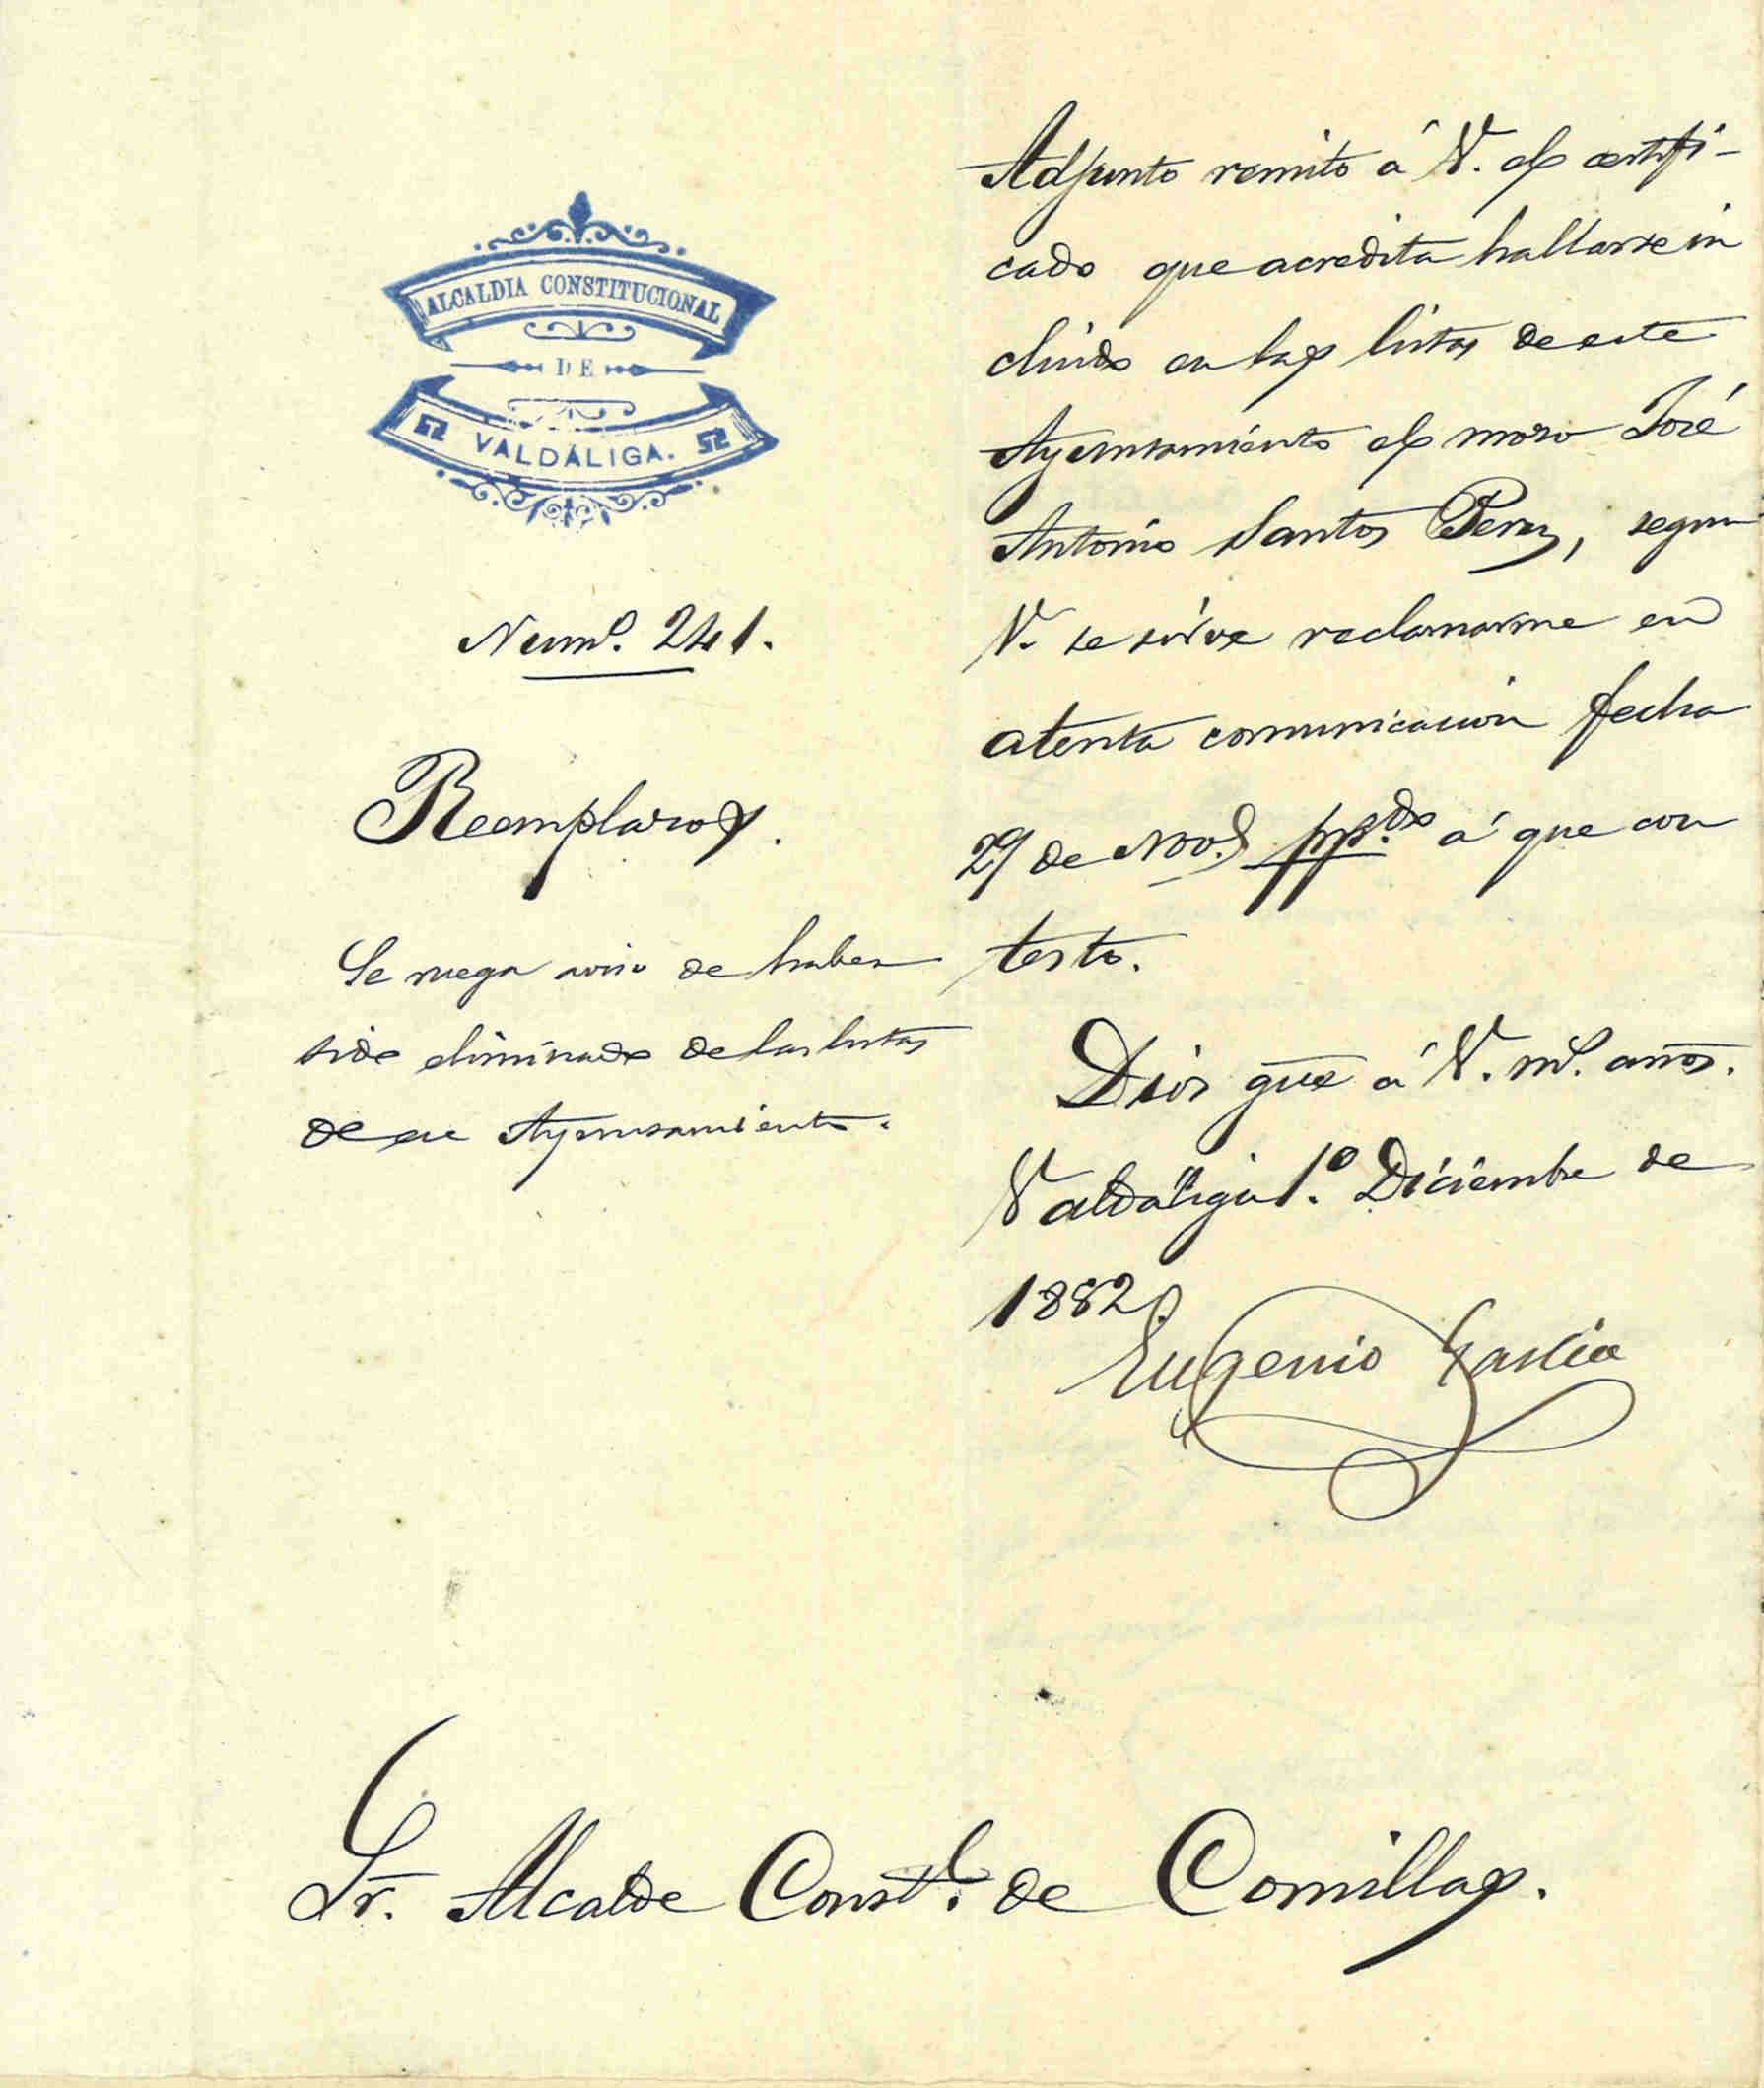 ALCALDIA CONSTITUCIONAL
DE
VALDÁLIGA.
Numº. 241.
Reemplazos.
Se ruega aviso de haber
sido eliminado de las listas
de ese Ayuntamiento.
Adjunto remito á V. el certifi-
cado que acredita hallarse in
cluido en las listas de este
Ayuntamiento el mozo José
Antonio Santos Perez, segun
V. se sirve reclamarme en
atenta comunicacion fecha
29 de Nove. ppdo. á que con
testo.
Dios gue á V. ms. años.
Valdáliga 1º. Diciembre de
1882.
Eugenio Garcia
Sr. Alcalde Constl. de Comillas.